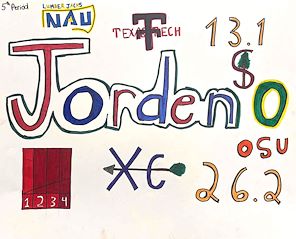 5th Period
LUMBERJACKS
NAU
TEXAS TECH
T
13.1
$
Jorden
O
OSU
1 2 3 4
XC
26.2